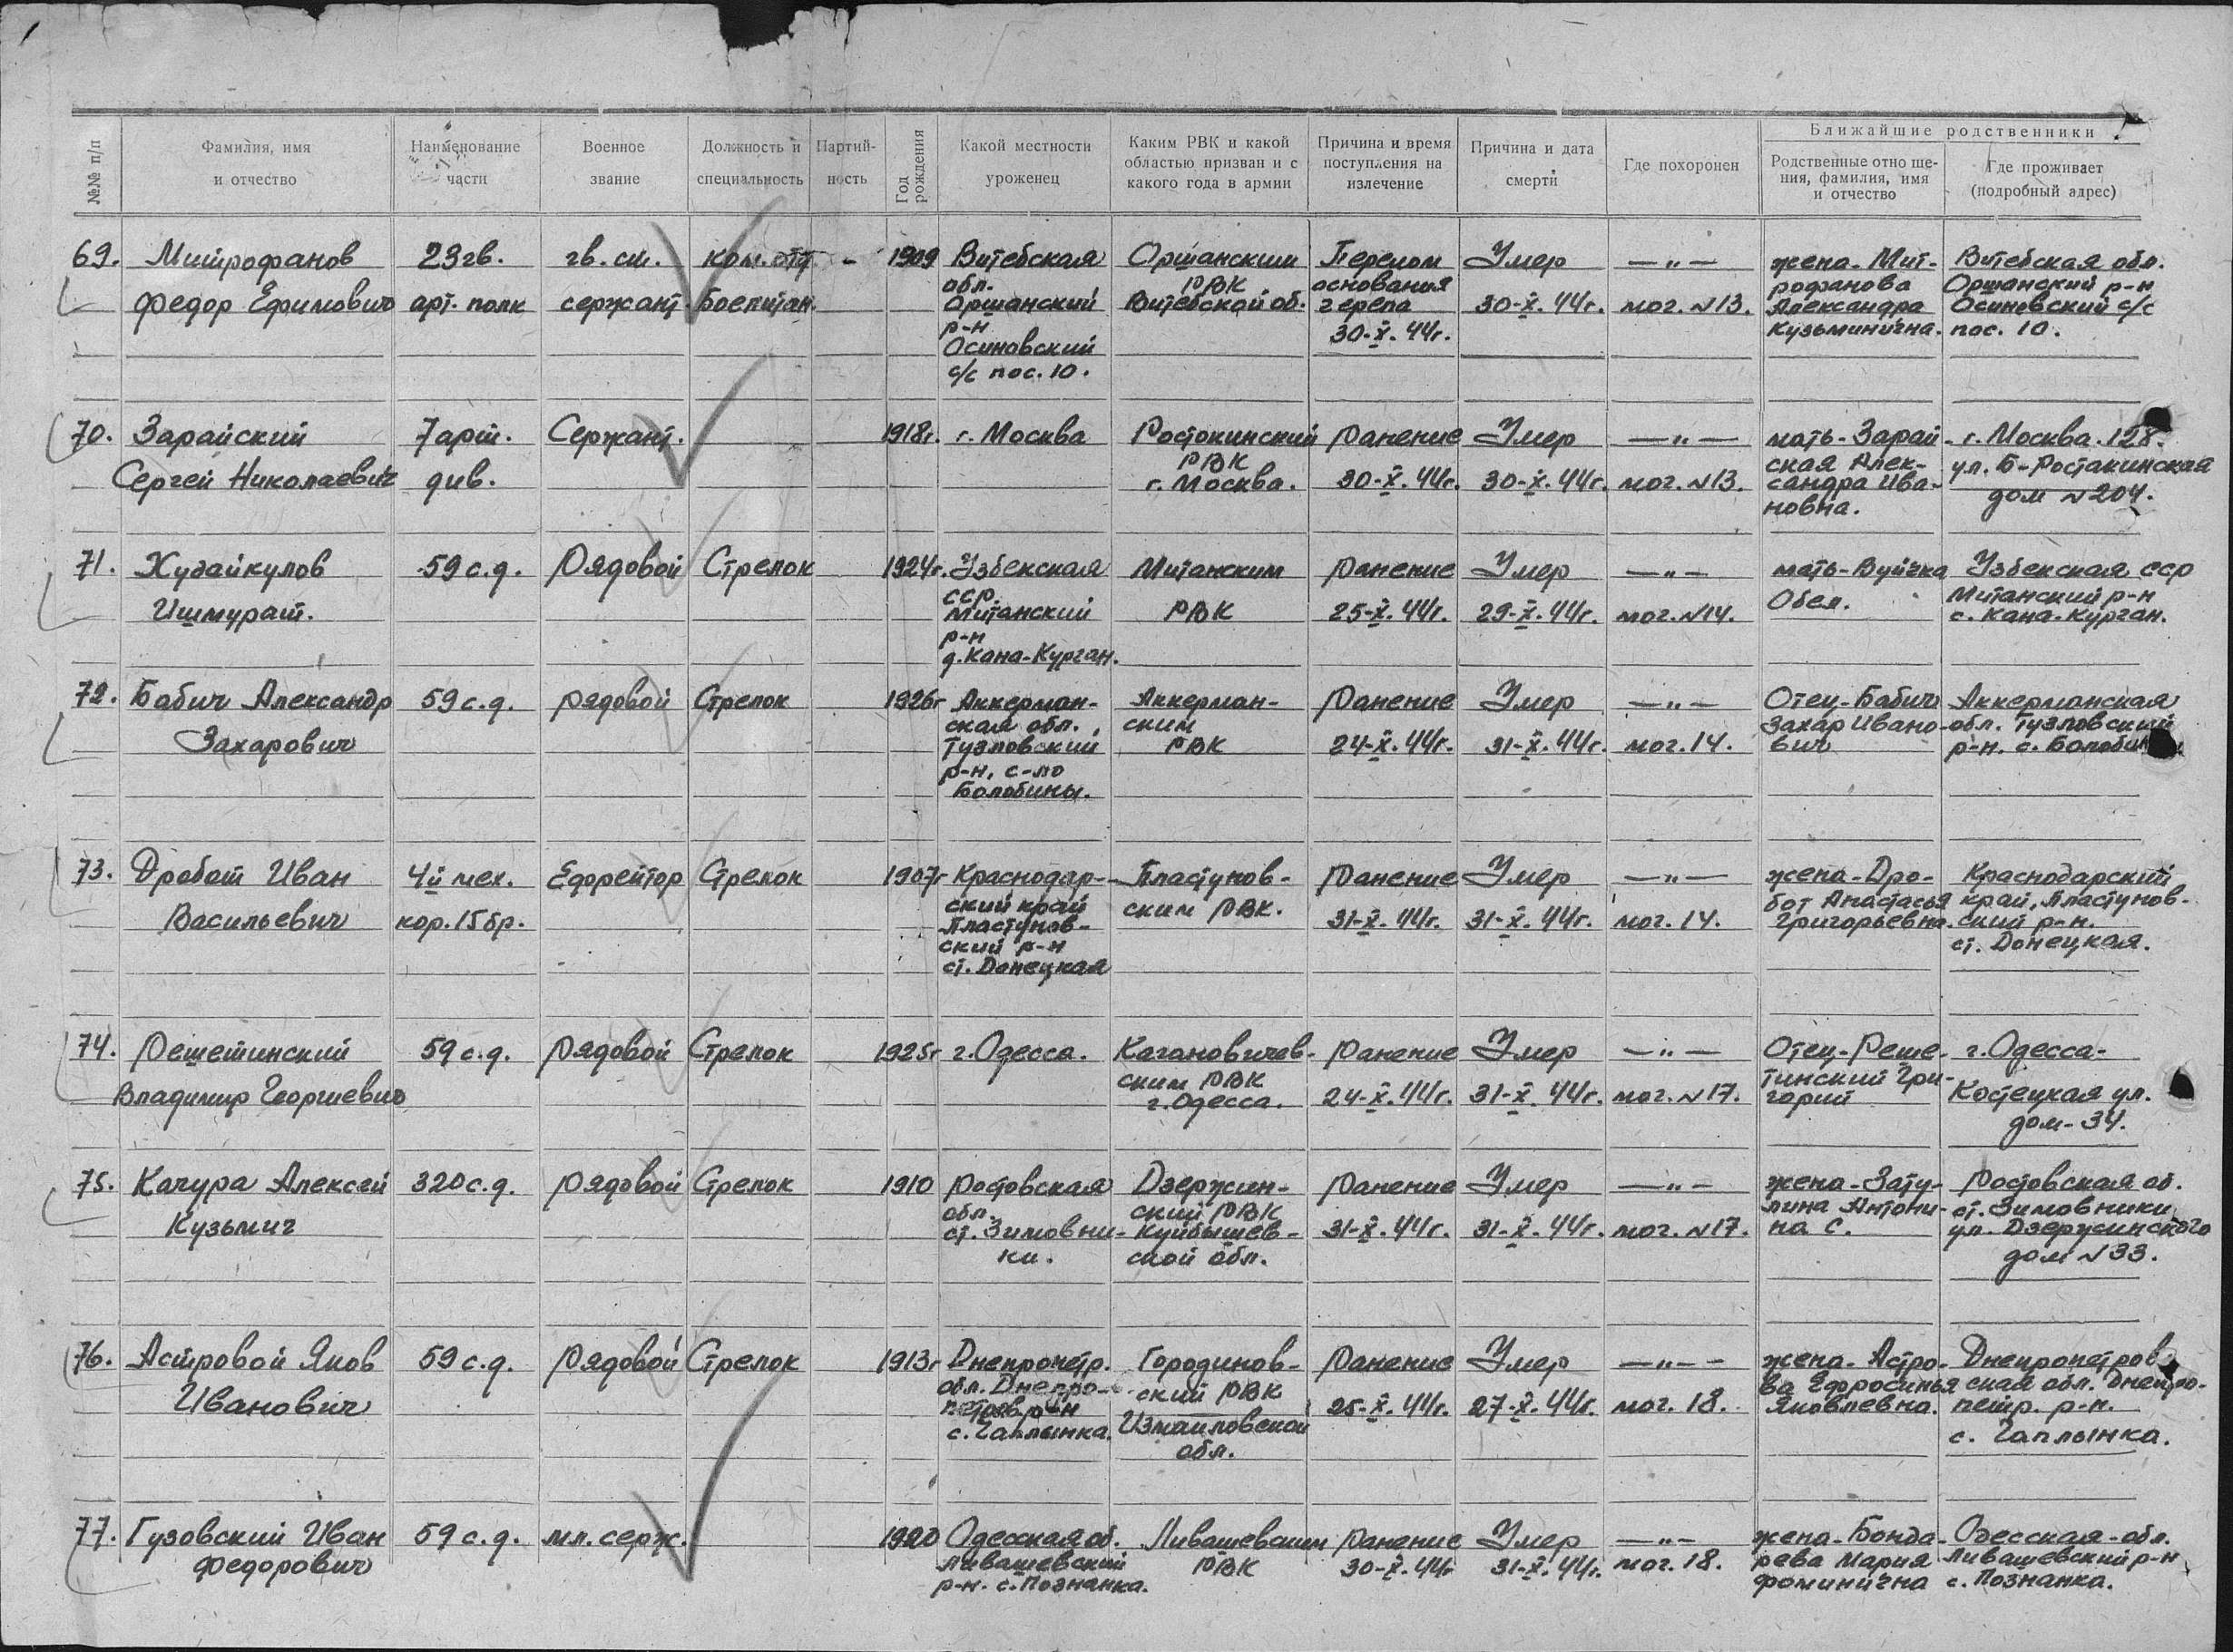 №№ п/п
Фамилия, имя
и отчество
Наименование
части
Военное
звание
Должность и
специальность
Партий-
ность
Год
рождения
Какой местности
уроженец
Каким РВК и какой
областью призван и с
какого года в армии
Причина и время
поступления на
излечение
Причина и дата
смерти
Где похоронен
Ближайшие родственники
Родственные отно ше-
ния, фамилия, имя
и отчество
Где проживает
(подробный адрес)
69.
Митрофанов
Федор Ефимович
23 гв.
арт. полк
гв. ст.
сержант.
ком. отд
Боепитан.
-
1909
Витебская
обл.
Оршанский
р-н
Осиновский
с/с пос. 10.
Оршанским
РВК
Витебской об.
Перелом
основания
черепа
30-X. 44г.
Умер
30-X. 44г.
—"—
мог. N13.
жена - Мит-
рофанова
Александра
Кузьминична.
Витебская обл.
Оршанский р-н
Осиновский с/с
пос. 10.
70.
Зарайский
Сергей Николаевич
7 арт.
див.
Сержант.
1918г.
г. Москва
Ростокинский
РВК
г. Москва.
Ранение
30-X. 44г.
Умер
30-X. 44г.
—"—
мог. N13.
мать - Зарай-
ская Алек-
сандра Ива-
новна.
г. Москва. 128.
ул. Б-Ростакинская
дом N204.
71.
Худайкулов
Ишмурат.
59 с.д.
Рядовой
Стрелок
1924г.
Узбекская
сср.
Митанский
р-н
д. Кана-Курган.
Митанским
РВК
Ранение
25-X. 44г.
Умер
29-X. 44г.
—"—
мог. N14.
мать - Вуйчка
Обел.
Узбекская сср
Митанский р-н
с. Кана-Курган.
72.
Бабич Александр
Захарович
59 с.д.
рядовой
Стрелок
1926г
Аккерман-
ская обл.
Тузловский
р-н, с-ло
Болобины.
Аккерман-
ским
РВК
Ранение
24-X. 44г.
Умер
31-X. 44г.
—"—
мог. 14.
Отец - Бабич
Захар Ивано-
вич
Аккерманская
обл. Тузловский
р-н. с.
73.
Дробот Иван
Васильевич
4й мех.
кор. 15 бр.
Ефрейтор
Стрелок
1907г
Краснодар-
ский край
Пластунов-
ский р-н
ст. Донецкая
Пластунов-
ским РВК.
Ранение
31-X. 44г.
Умер
31-X. 44г.
—"—
мог. 14.
жена - Дро-
бот Анастасья
Григорьевна.
Краснодарский
край, Пластунов-
ский р-н.
ст. Донецкая.
74.
Решетинский
Владимир Георгиевич
59 с.д.
Рядовой
Стрелок
1925г
г. Одесса.
Кагановичев-
ским РВК
г. Одесса.
Ранение
24-X. 44г.
Умер
31-X. 44г.
—"—
мог. N17.
Отец - Реше-
тинский Гри-
горий
г. Одесса-
Костецкая ул.
дом - 34.
75.
Качура Алексей
Кузьмич
320 с.д.
рядовой
Стрелок
1910
Ростовская
обл.
ст. Зимовни-
ки.
Дзержин-
ский РВК
Куйбышев-
ской обл.
Ранение
31-X. 44г.
Умер
31-X. 44г.
—"—
мог. N17.
жена - Зату-
лина Антони-
на С.
Ростовская об.
ст. Зимовники
ул. Дзержинского
дом N33.
76.
Астровой Яков
Иванович
59 с.д.
Рядовой
Стрелок
1913г
Днепропетр.
обл. Днепро-
петров р-н
с. Чаплынка.
Городинов-
ский РВК
Измаиловской
обл.
Ранение
25-X. 44г.
Умер
27-X. 44г.
—"—
мог. 18.
жена - Астро-
ва Ефросинья
Яковлевна.
Днепропетров
ская обл. Днепро-
петр. р-н.
с. Чаплынка.
77.
Гузовский Иван
Федорович
59 с.д.
мл. серж.
1920
Одесская об.
Ливашевский
р-н. с. Познанка.
Ливашевским
РВК
Ранение
30-X. 44г
Умер
31-X. 44г.
—"—
мог. 18.
жена - Бонда-
рева Мария
Фоминична
Одесская - обл.
Ливашевский р-н
с. Познанка.